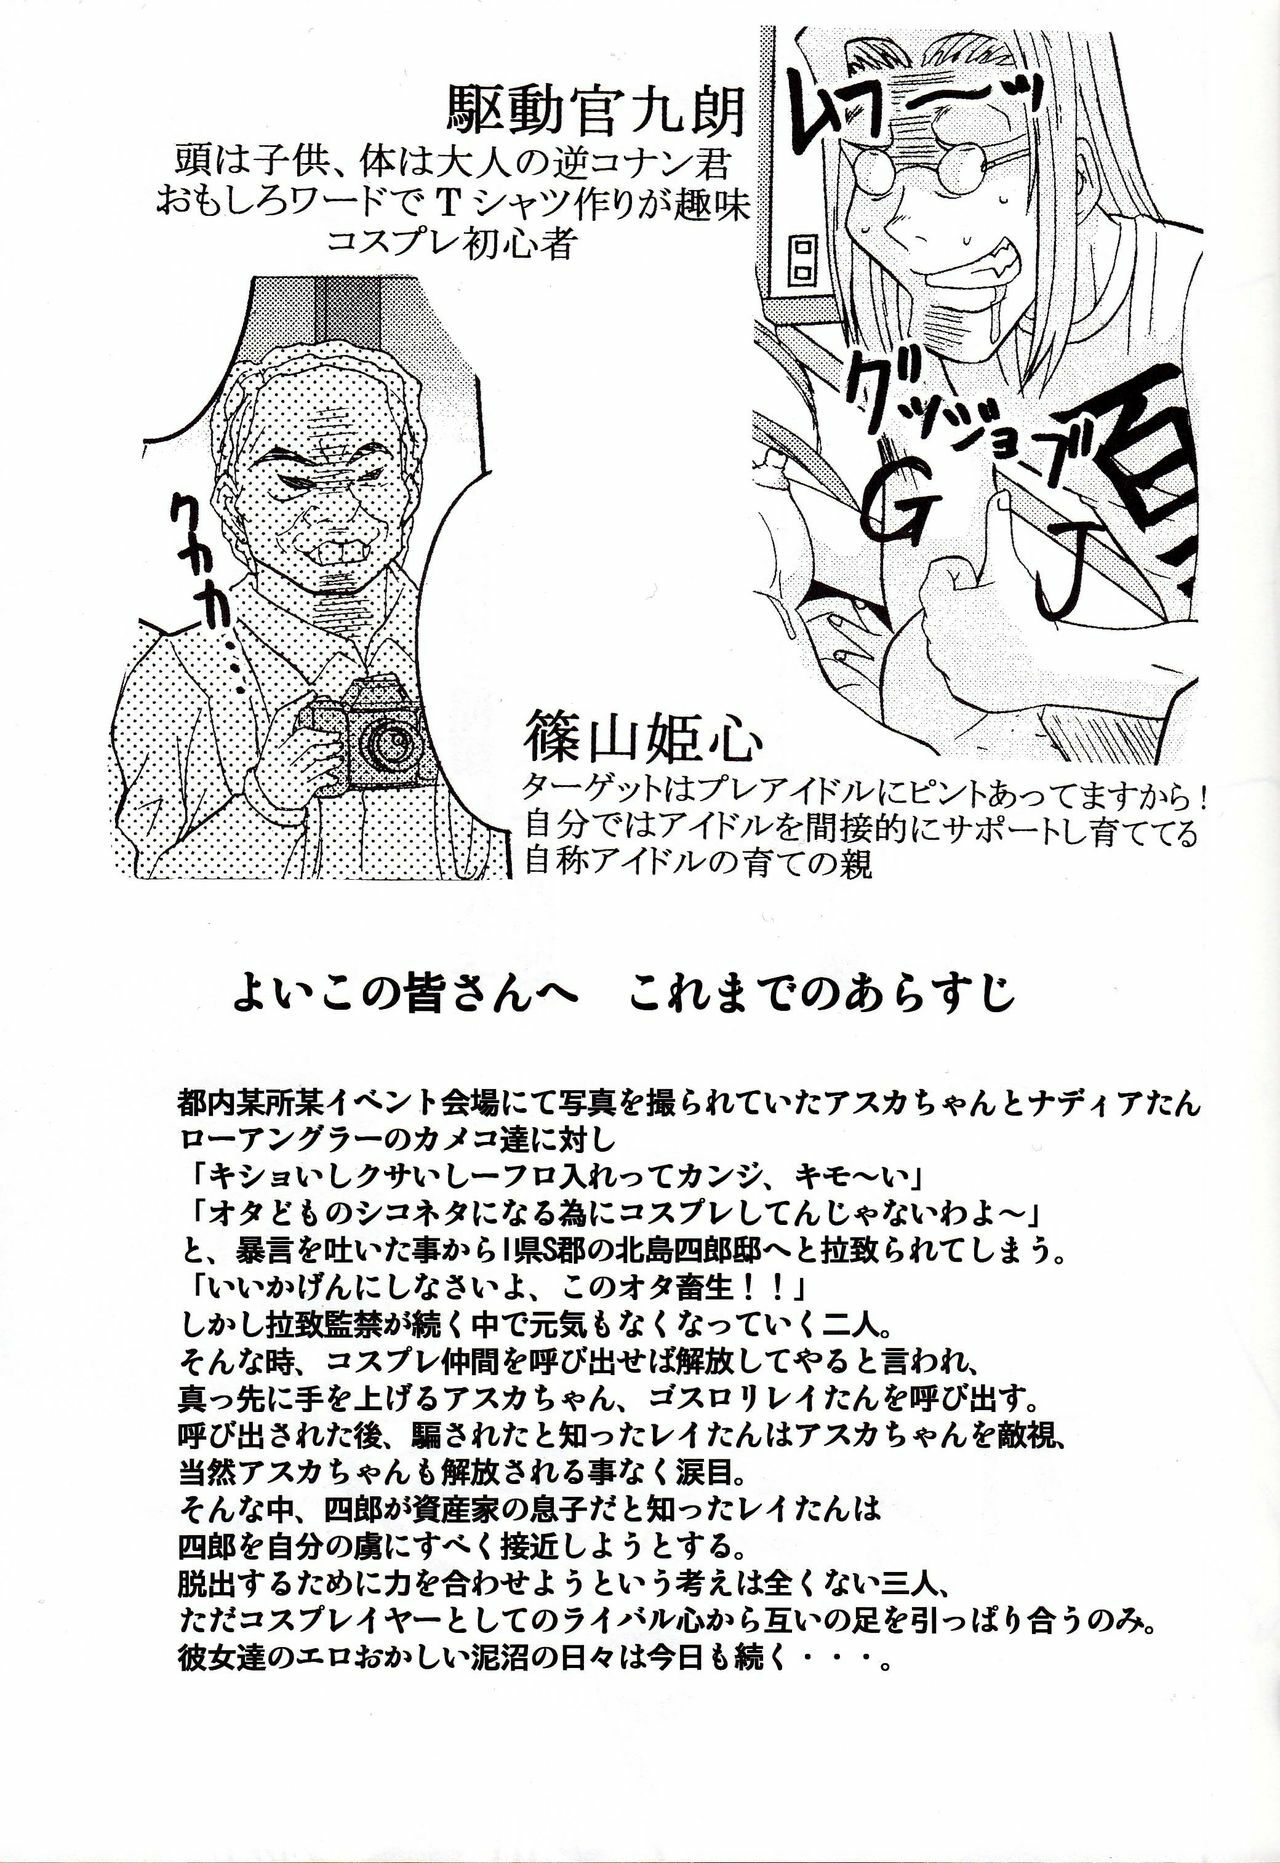 駆動官九朗
頭は子供、体は大人の逆コナン君
おもしろワードでTシャツ作りが趣味
コスプレ初心者
ムフ〜〜ッ
グッツジョブ
G
J
百
クカカ・・・
篠山姫心
ターゲットはプレアイドルにピントあってますから!
自分ではアイドルを間接的にサポートし育ててる
自称アイドルの育ての親
よいこの皆さんへ　これまでのあらすじ
都内某所某イベント会場にて写真を撮られていたアスカちゃんとナディアたん
ローアングラーのカメコ達に対し
「キショいしクサいし一フロ入れってカンジ、キモ〜い」
「オタどものシコネタになる為にコスプレしてんじゃないわよ〜」
と、暴言を吐いた事からI県S郡の北島四郎邸へと拉致られてしまう。
「いいかげんにしなさいよ、このオタ畜生!!」
しかし拉致監禁が続く中で元気もなくなっていく二人。
そんな時、コスプレ仲間を呼び出せば解放してやると言われ、
真っ先に手を上げるアスカちゃん、ゴスロリレイたんを呼び出す。
呼び出された後、騙されたと知ったレイたんはアスカちゃんを敵視、
当然アスカちゃんも解放される事なく涙目。
そんな中、四郎が資産家の息子だと知ったレイたんは
四郎を自分の虜にすべく接近しようとする。
脱出するために力を合わせようという考えは全くない三人、
ただコスプレイヤーとしてのライバル心から互いの足を引っぱり合うのみ。
彼女達のエロおかしい泥沼の日々は今日も続く・・・。